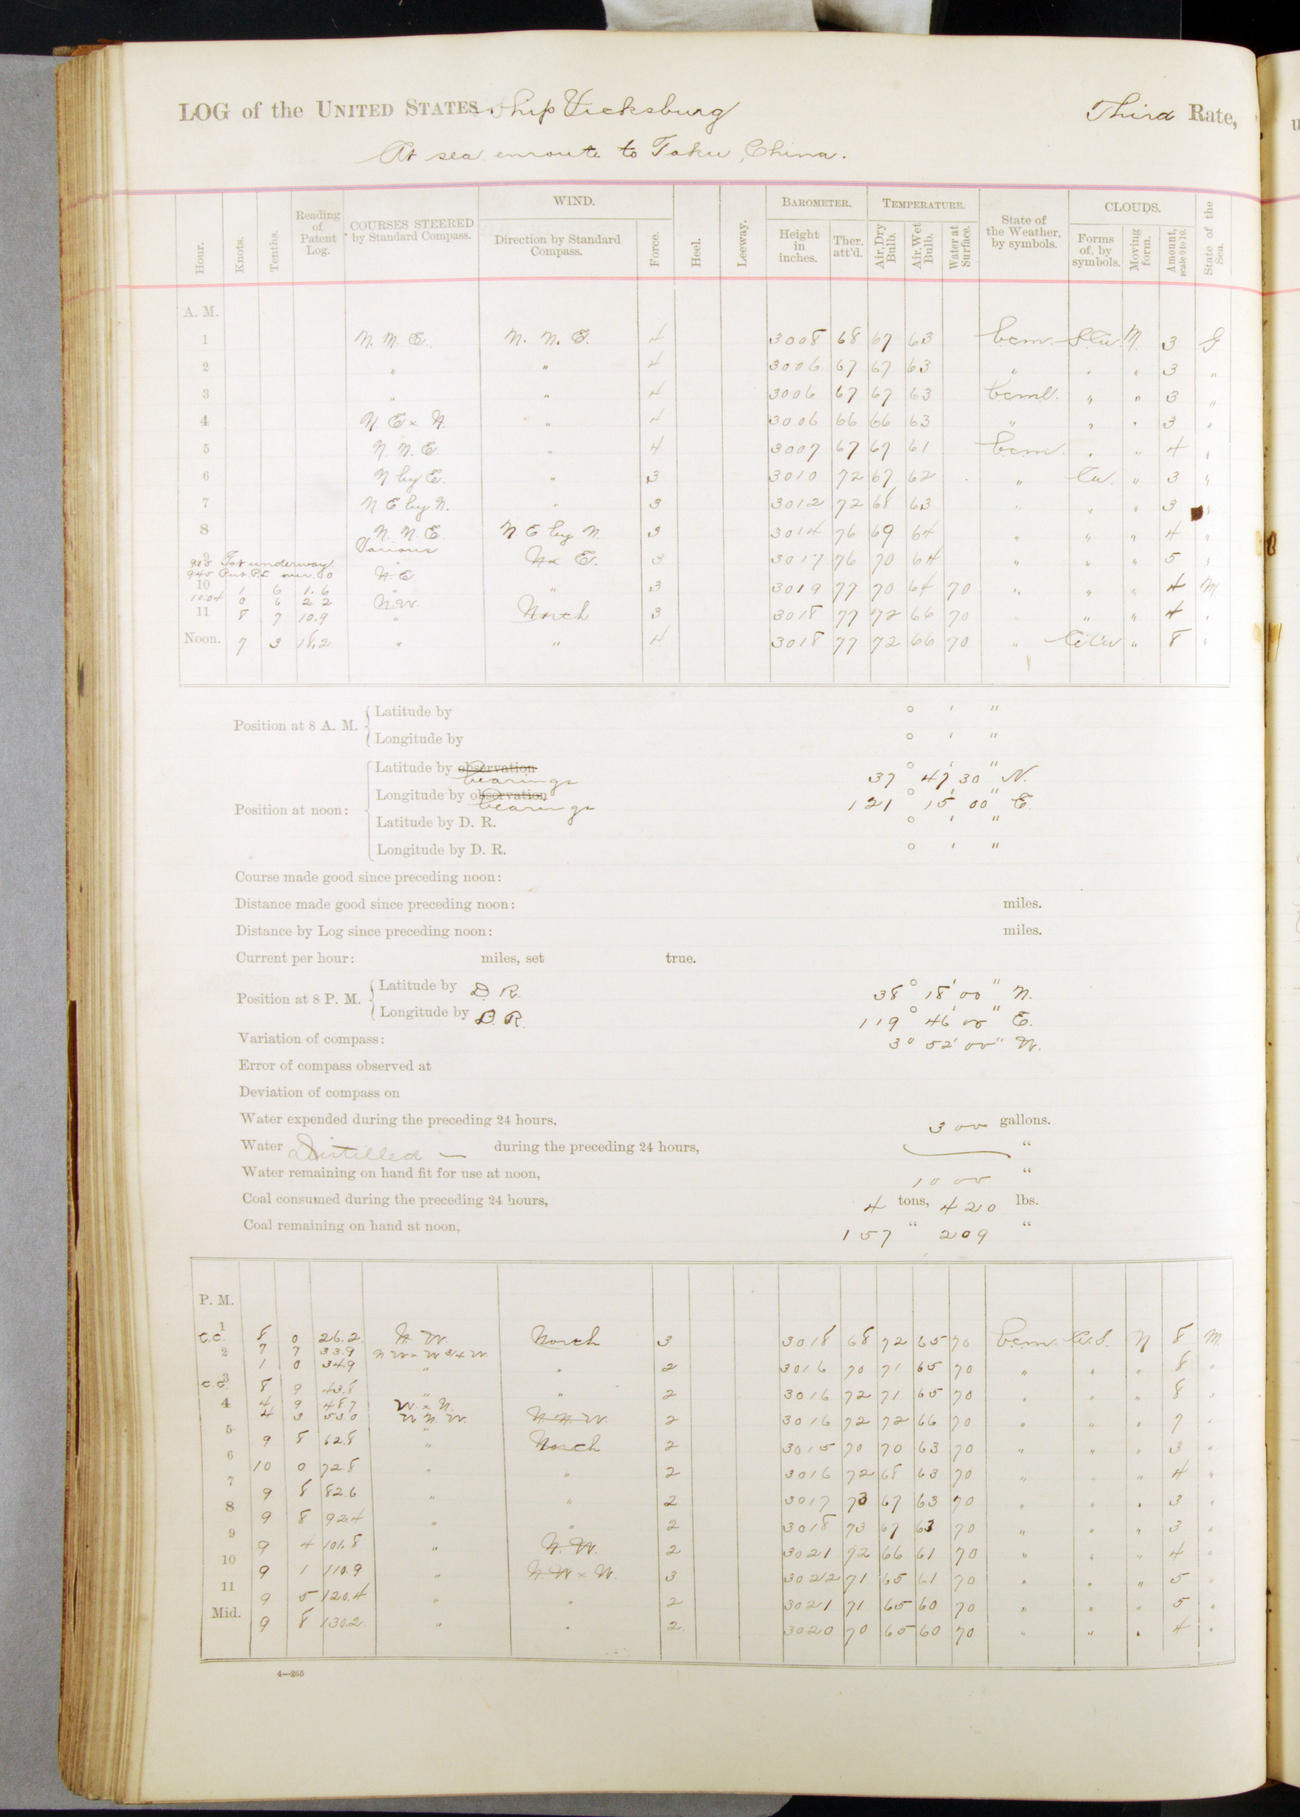 LOG of the UNITED STATES Ship Vicksburg Third Rate,
At sea enroute to Taku, China.
Hour. Knots. Tenths. Reading of Patent Log. COURSES STEERED by Standard Compass. WIND. Direction by Standard Compass. Force. Heel. Leeway. BAROMETER. Height in inches. Ther. att'd. TEMPERATURE. Air, Dry Bulb. Air, Wet Bulb. Water at Surface. State of the Weather, by symbols. CLOUDS. Forms of, by symbols. Moving form. Amount, scale 0 to 10. State of the Sea.
A. M.
1 N. N. E. N. N. E. 4 3008 68 67 63 bcm. S.Cu. N. 3 G
2 " " 4 3006 67 67 63 " " " 3 "
3 " " 4 3006 67 67 63 bcml. " " 3 "
4 N E x N. " 4 3006 66 66 63 " " " 3 "
5 N. N. E. " 4 3007 67 67 61 bcm. " " 4 "
6 N by E. " 3 3010 72 67 62 " Cu. " 3 "
7 N E by N. " 3 3012 72 68 63 " " " 3 "
8 N. N. E. N E by N 3 3014 76 69 64 " " " 4 "
9 Various N x E. 3 3017 76 70 64 " " " 5 "
918 Got underway.
945 Put P.L. over. 00 N.E.
10 1 6 1.6 " 3 3019 77 70 64 70 " " " 4 M
10.04 0 6 2.2 N.W.
11 8 7 10.9 " North 3 3018 77 72 66 70 " " " 4 "
Noon. 7 3 18.2 " " 4 3018 77 72 66 70 " Ci.Cu " 8 "
Position at 8 A. M. Latitude by ° ' "
Longitude by ° ' "
Position at noon: Latitude by observation bearings 37° 47' 30" N.
Longitude by observation bearings 121° 15' 00" E.
Latitude by D. R. ° ' "
Longitude by D. R. ° ' "
Course made good since preceding noon:
Distance made good since preceding noon: miles.
Distance by Log since preceding noon: miles.
Current per hour: miles, set true.
Position at 8 P. M. Latitude by D. R. 38° 18' 00" N.
Longitude by D. R. 119° 46' 00" E.
Variation of compass: 3° 52' 00" W.
Error of compass observed at
Deviation of compass on
Water expended during the preceding 24 hours, 300 gallons.
Water Distilled — during the preceding 24 hours, "
Water remaining on hand fit for use at noon, 1000 "
Coal consumed during the preceding 24 hours, 4 tons, 420 lbs.
Coal remaining on hand at noon, 157 " 209 "
P. M.
1 8 0 26.2 N. W. North 3 3018 68 72 65 70 bcm. N 8 M.
C.C. 7 7 33.9
2 1 0 34.9 " " 2 3016 70 71 65 70 " " " 8 "
3 8 9 43.8 " " 2 3016 72 71 65 70 " " " 8 "
C.C. 4 9 48.7 W. x N.
4 4 3 53.0 W N. W. N. N. W. 2 3016 72 72 66 70 " " " 7 "
5 9 8 62.8 " North 2 3015 70 70 63 70 " " " 3 "
6 10 0 72.8 " " 2 3016 72 68 63 70 " " " 4 "
7 9 8 82.6 " " 2 3017 73 67 63 70 " " " 3 "
8 9 8 92.4 " " 2 3018 73 67 63 70 " " " 3 "
9 9 4 101.8 " N. W. 2 3021 72 66 61 70 " " " 4 "
10 9 1 110.9 " N. W x N. 3 3022 71 65 61 70 " " " 5 "
11 9 5 120.4 " " 2 3021 71 65 60 70 " " " 5 "
Mid. 9 8 130.2 " " 2 3020 70 65 60 70 " " " 4 "
4—265